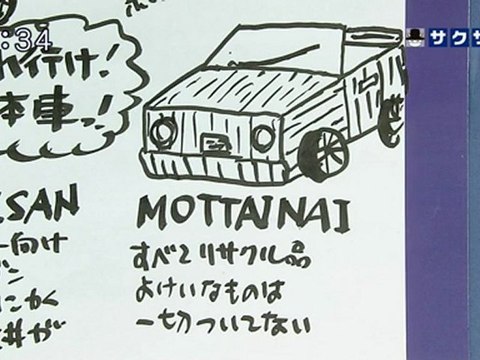 :34
サクサ
れ行け!
本車っ!
SAN
ー向け
ン
にかく
MOTTAINAI
すべてリサクル品
よけいなものは
一切ついてない